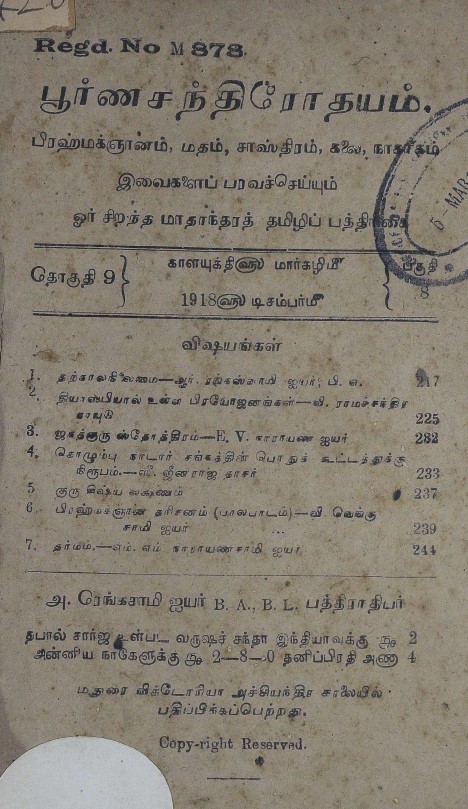 Regd. No M 878.
பூர்ணசந்திரோதயம்.
பிரஹ்மக்ஞானம், மதம், சாஸ்திரம், கலை, நாகரீகம்
இவைகளைப் பரவச்செய்யும்
ஓர் சிறந்த மாதாந்தரத் தமிழிப் பத்திரிகை
தொகுதி 9
காளயுக்தி௵ மார்கழி௴
1918௵ டிசம்பர்௴
பகுதி
8
விஷயங்கள்
1. தற்காலநிலைமை—ஆர். ரங்கஸ்வாமி ஐயர், பி. ஏ. 217
2. தியாஸபியால் உள்ள பிரயோஜனங்கள்—வி. ராமச்சந்திர
நாயுடு 225
3. ஜகத்குரு ஸ்தோத்திரம்—E. V. நாராயண ஐயர் 232
4. கொழும்பு நாடார் சங்கத்தின் பொதுக் கூட்டத்துக்கு
நிரூபம்.—ஸ்ரீ ஜீனராஜ தாசர் 233
5 குரு சிஷ்ய லக்ஷணம் 237
6 பிரஹ்மக்ஞான தரிசனம் (பாலபாடம்)—வி. வெங்கு
சாமி ஐயர் ... 239
7. தர்மம்.—எம். எம். நாராயணசாமி ஐயர் 244
அ. ரெங்கசாமி ஐயர் B. A., B. L. பத்திராதிபர்
தபால் சார்ஜ் உள்பட வருஷச் சந்தா இந்தியாவுக்கு ரூ 2
அன்னிய நாடுகளுக்கு ரூ 2—8—0 தனிப்பிரதி அணா 4
மதுரை விக்டோரியா அச்சியந்திர சாலையில்
பதிப்பிக்கப்பெற்றது.
Copy-right Reserved.